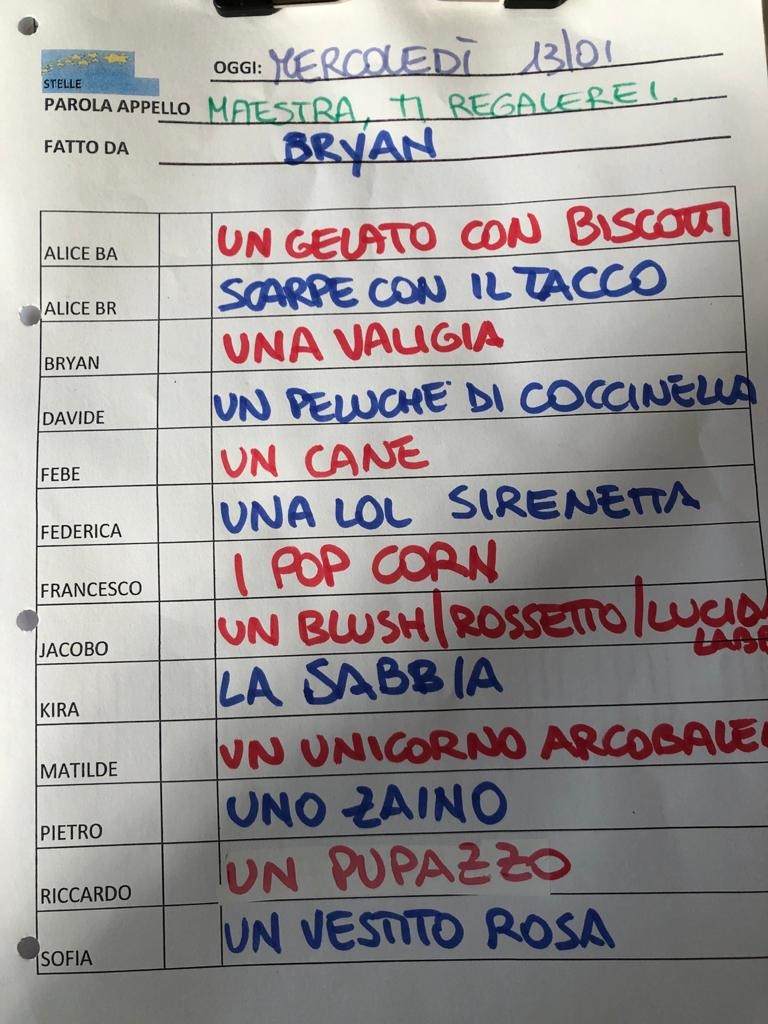 OGGI: MERCOLEDÌ 13/01
STELLE
PAROLA APPELLO MAESTRA, TI REGALEREI.
FATTO DA BRYAN
ALICE BA UN GELATO CON BISCOTTI
ALICE BR SCARPE CON IL TACCO
BRYAN UNA VALIGIA
DAVIDE UN PELUCHE DI COCCINELLA
FEBE UN CANE
FEDERICA UNA LOL SIRENETTA
FRANCESCO I POP CORN
JACOBO UN BLUSH/ROSSETTO/LUCIDA
LABB
KIRA LA SABBIA
MATILDE UN UNICORNO ARCOBALE
PIETRO UNO ZAINO
RICCARDO UN PUPAZZO
SOFIA UN VESTITO ROSA